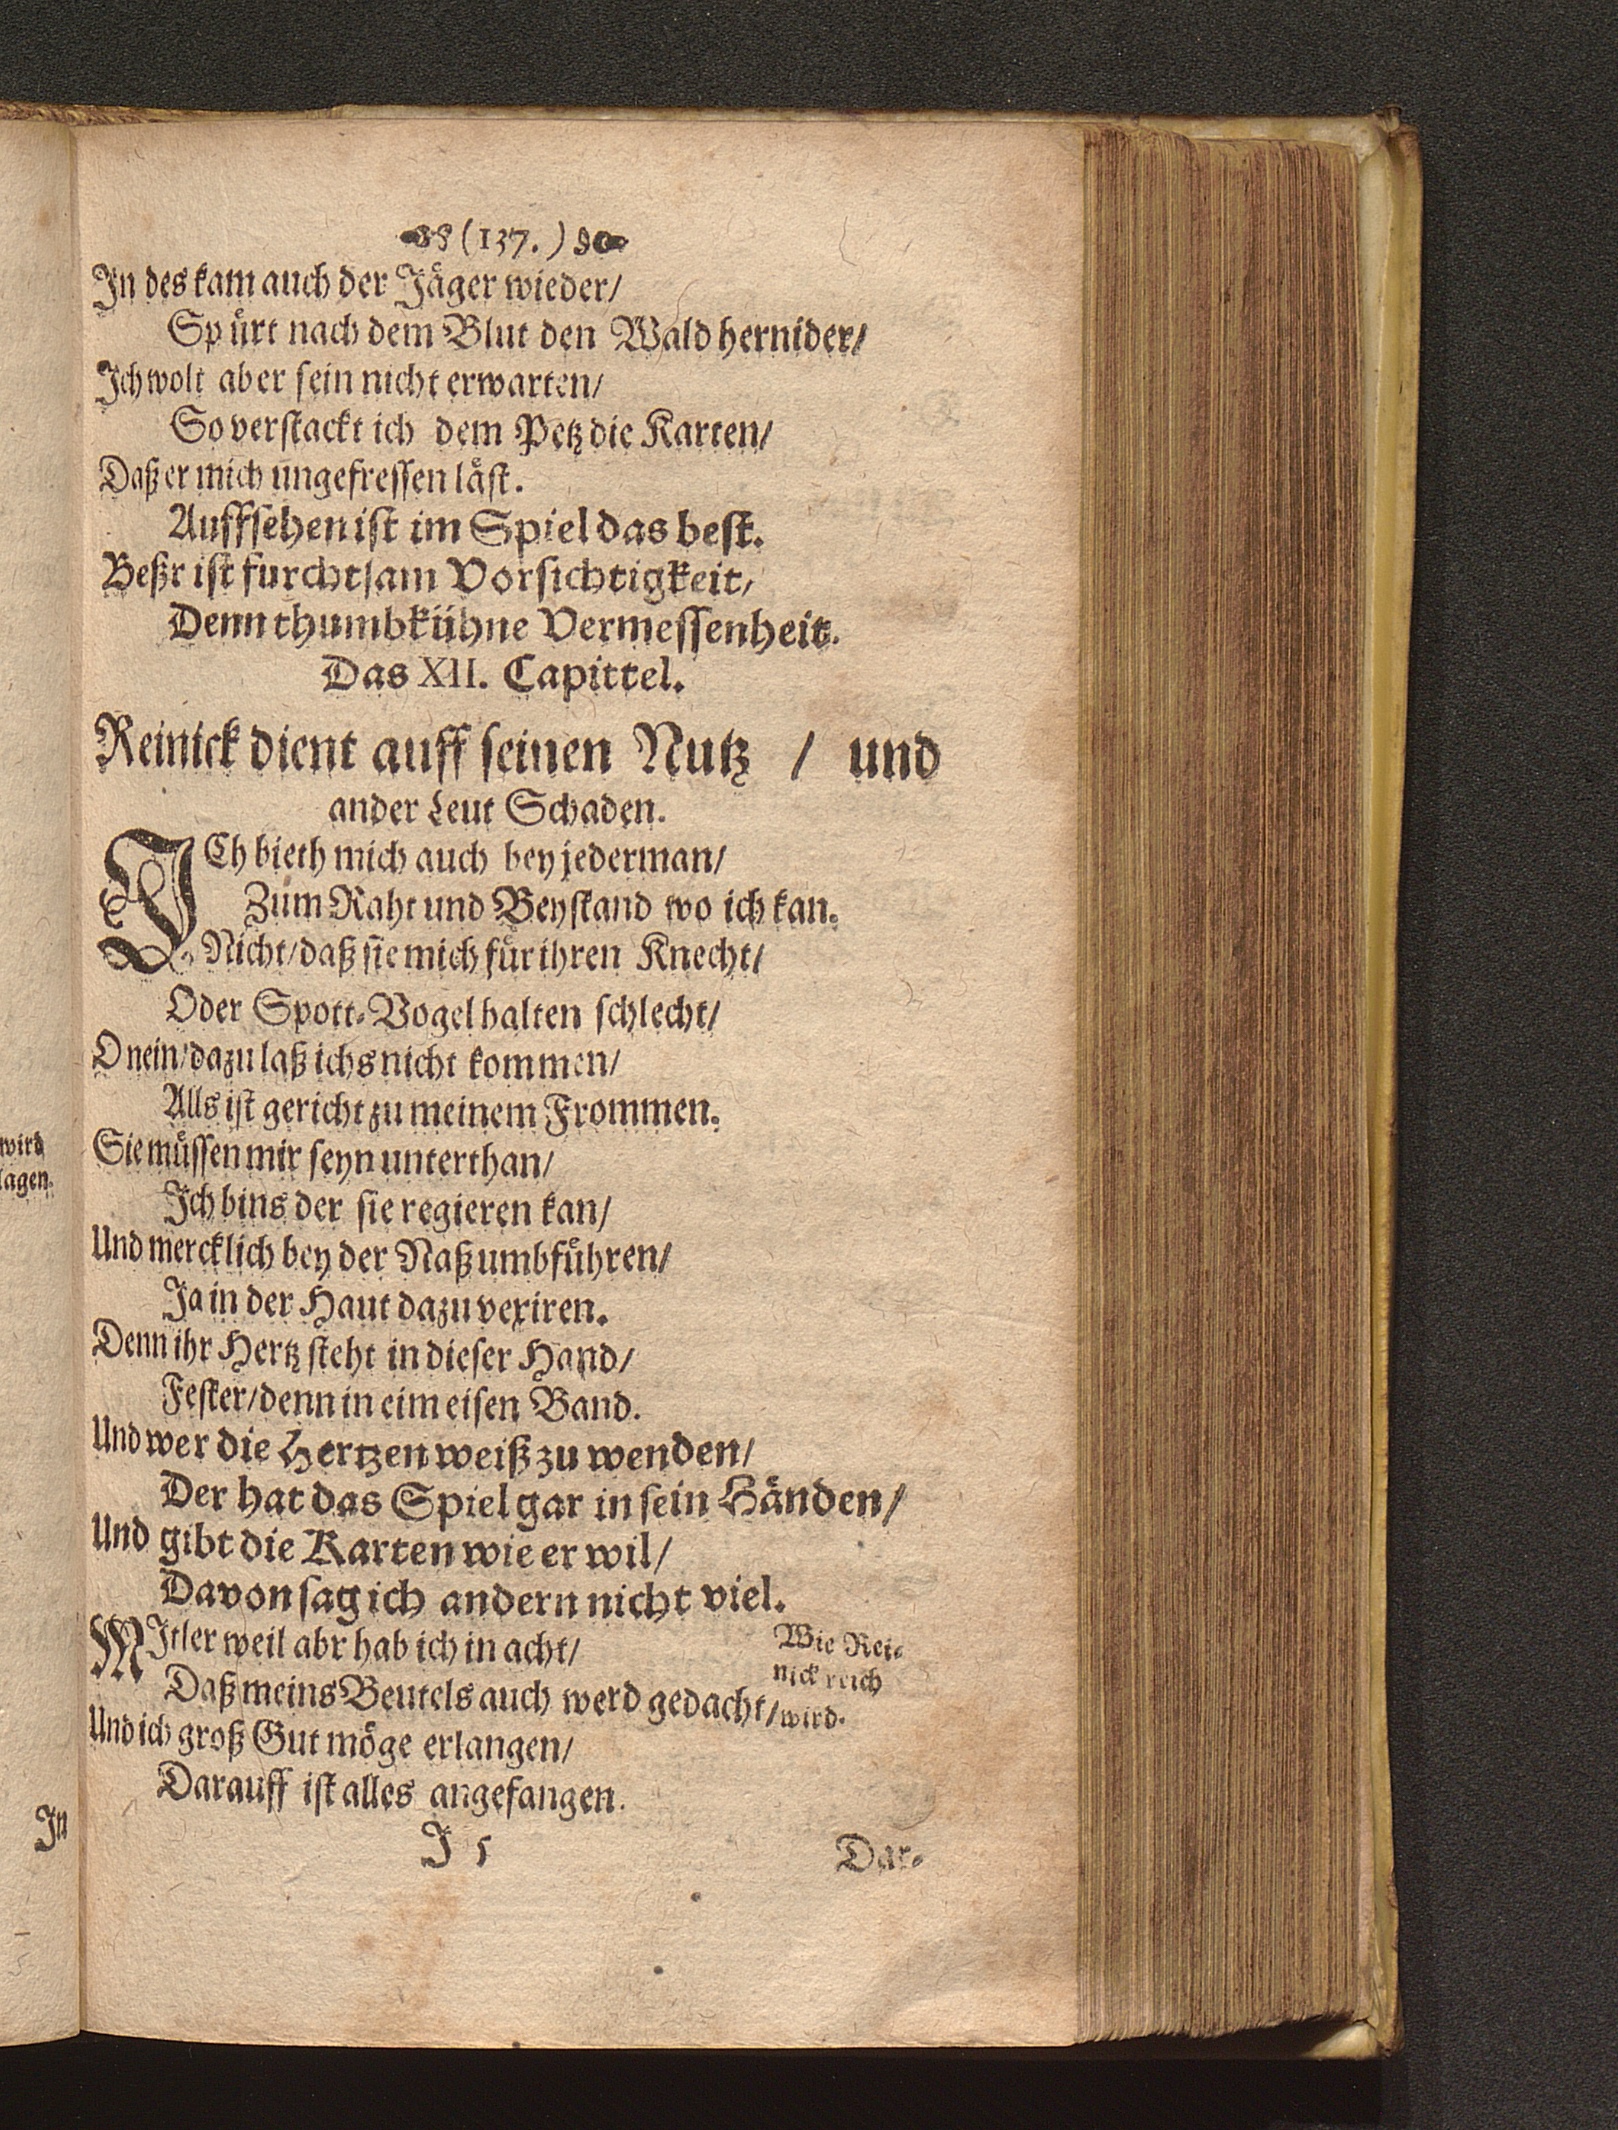 (137.)
In des kam auch der Jäger wieder/
Spürt nach dem Blut den Wald hernider/
Ich wolt aber sein nicht erwarten/
So verstackt ich dem Petz die Karten/
Daß er mich ungefressen läst.
Auffsehen ist im Spiel das best.
Beßr ist furchtsam Vorsichtigkeit/
Denn thumbkühne Vermessenheit.
Das XII. Capittel.
Reinick dient auff seinen Nutz / und
ander Leut Schaden.
ICh bieth mich auch bey jederman/
Zum Raht und Beystand wo ich kan.
Nicht/daß sie mich für ihren Knecht/
Oder Spott-Vogel halten schlecht/
O nein/dazu laß ichs nicht kommen/
Alls ist gericht zu meinem Frommen.
Sie müssen mir seyn unterthan/
Ich bins der sie regieren kan/
Und mercklich bey der Naß umbführen/
Ja in der Haut dazu vexiren.
Denn ihr Hertz steht in dieser Hand/
Fester/denn in eim eisen Band.
Und wer die Hertzen weiß zu wenden/
Der hat das Spiel gar in sein Händen/
Und gibt die Karten wie er wil/
Davon sag ich andern nicht viel.
MItler weil abr hab ich in acht/
Daß meins Beutels auch werd gedacht/
Und ich groß Gut möge erlangen/
Darauff ist alles angefangen.
Wie Rei-
nick reich
wird.
I 5
Dar-
wird
lagen.
In